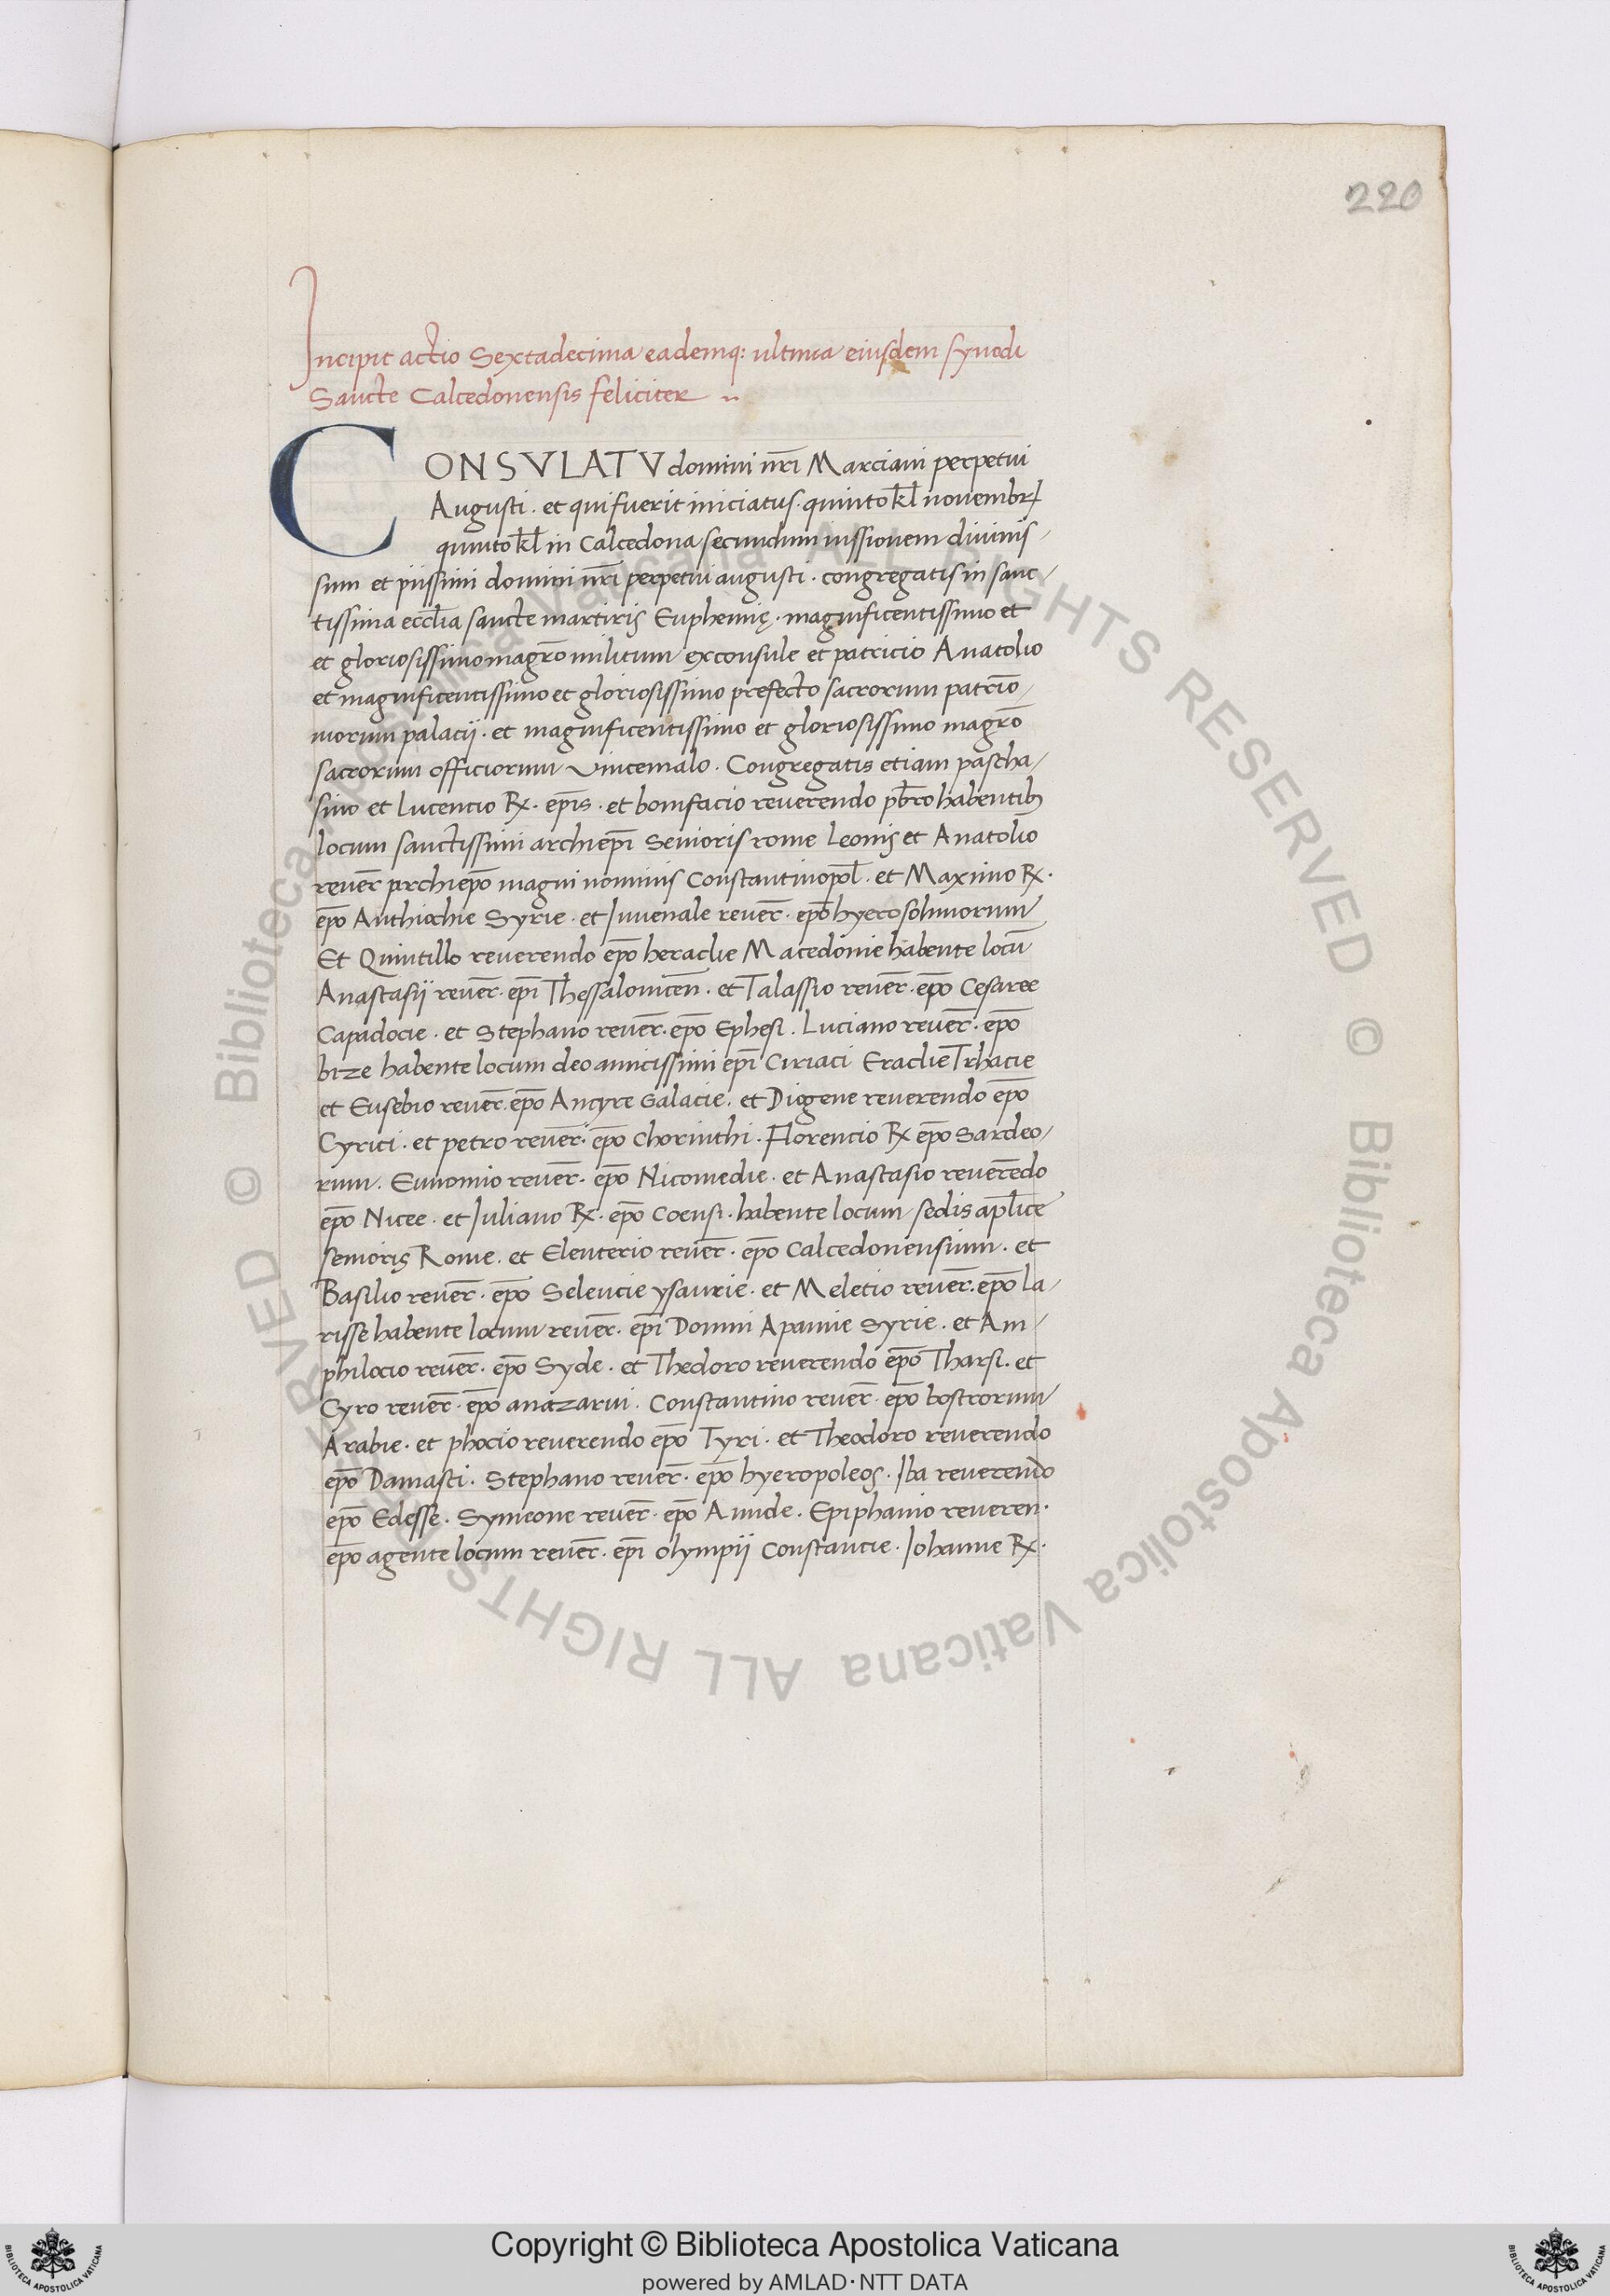 220
Incipit actio Sextadecima eademq: ultima eiusdem synodi
Sancte Calcedonensis feliciter
CONSVLATV domini nr̄i Marciani perpetui
Augusti . et qui fuerit iniciatus . quinto kl̄ novembr
quinto kl̄ in Calcedona secundum iussionem divinis-
sim et piissimi domini nr̄i perpetui augusti . congregatis in sanc-
tissima eccl̄ia sancte martiris Euphemię . magnificentissimo et
et gloriosissimo magr̄o militum exconsule et patricio Anatolio
et magnificentissimo et gloriosissimo prefecto sacrorum patrīo-
niorum palacij . et magnificentissimo et gloriosissimo magr̄o
sacrorum officiorum Vincemalo . Congregatis etiam pascha-
sino et Lucencio R . ep̄is . et bonifacio reverendo pb̄ro habentib;
locum sanctissimi archiep̄i Senioris rome Leonis et Anatolio
reuer̄ prchiep̄o magni nominis Constantinopol̄ . et Maximo R .
ep̄o Anthiochie Syrie . et Iuvenale reuer̄ . ep̄o hyerosolimorum
Et Quintillo reverendo ep̄o heraclie Macedonie habente locū
Anastasij reuer̄ . ep̄i Thessalonicen̄ . et Talassio reuer̄ . ep̄o Cesaree
Capadocie . et Stephano reuer̄ . ep̄o Ephesi . Luciano reuer̄ . ep̄o
bize habente locum deo amicissimi ep̄i Ciriaci Eraclie Trhacie
et Eusebio reuer̄ . ep̄o Ancyre Galacie . et Diogene reverendo ep̄o
Cyrici . et petro reuer̄ . ep̄o Chorinthi . Florencio R ep̄o Sardeo-
rum . Eunomio reuer̄ . ep̄o Nicomedie . et Anastasio reverēdo
ep̄o Nicee . et Iuliano R . ep̄o Coensi . habente locum sedis apl̄ice
senioris Rome . et Eleuterio reuer̄ . ep̄o Calcedonensium . et
Basilio reuer̄ . ep̄o Seleucie ysaurie . et Meletio reuer̄ . ep̄o la-
risse habente locum reuer̄ . ep̄i Domni Apamie Syrie . et Am-
philocio reuer̄ . ep̄o Syde . et Theodoro reverendo ep̄o Tharsi . et
Cyro reuer̄ . ep̄o anazarui . Constantino reuer̄ . ep̄o bostrorum
Arabie . et phocio reverendo ep̄o Tyri . et Theodoro reverendo
ep̄o Damasci . Stephano reuer̄ . ep̄o hyeropoleos . Iba reverendo
ep̄o Edesse . Symeone reuer̄ . ep̄o Amide . Epiphanio reveren .
ep̄o agente locum reuer̄ . ep̄i olympij Constancie . Iohanne R .
© Biblioteca Apostolica Vaticana ALL RIGHTS RESERVED © Biblioteca Apostolica Vaticana ALL RIGHTS RESERVED
Copyright © Biblioteca Apostolica Vaticana
powered by AMLAD·NTT DATA
BIBLIOTECA APOSTOLICA VATICANA
BIBLIOTECA APOSTOLICA VATICANA